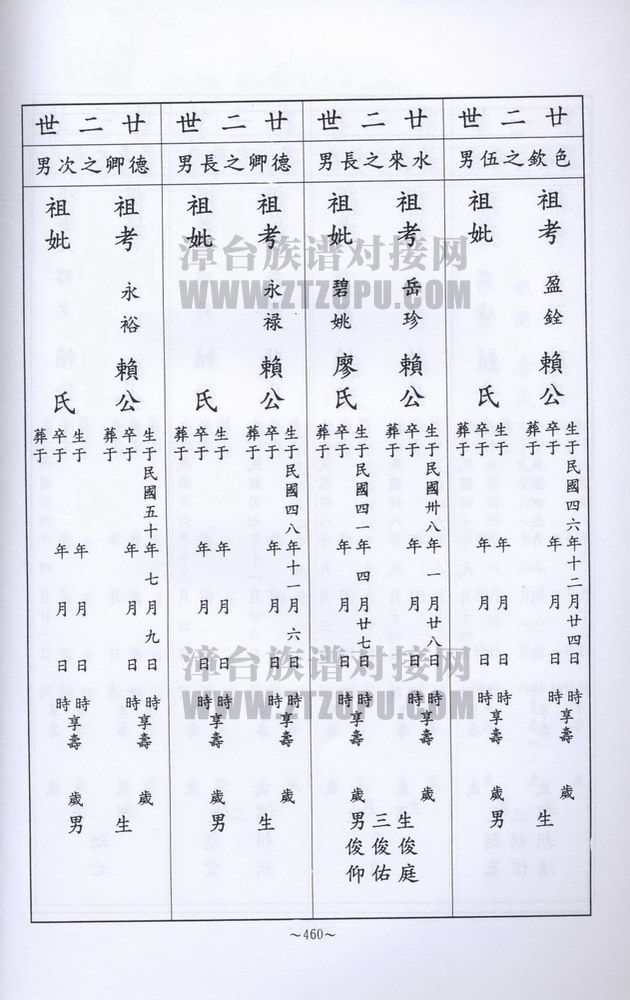 廿二世
色欽之伍男
祖考 盈銓 賴公
生于民國四六年十二月廿四日 時
卒于 年 月 日 時享壽 歲
祖妣 氏
生于 年 月 日 時
卒于 年 月 日 時享壽 歲
葬于
生 男
廿二世
水來之長男
祖考 岳珍 賴公
生于民國卅八年一月廿八日 時
卒于 年 月 日 時享壽 歲
葬于
祖妣 碧姚 廖氏
生于民國四一年四月廿七日 時
卒于 年 月 日 時享壽 歲
葬于
生三男
俊庭
俊佑
俊仰
廿二世
德卿之長男
祖考 永禄 賴公
生于民國四八年十一月六日 時
卒于 年 月 日 時享壽 歲
葬于
祖妣 氏
生于 年 月 日 時
卒于 年 月 日 時享壽 歲
葬于
生 男
廿二世
德卿之次男
祖考 永裕 賴公
生于民國五十年七月九日 時
卒于 年 月 日 時享壽 歲
葬于
祖妣 氏
生于 年 月 日 時
卒于 年 月 日 時享壽 歲
葬于
生 男
～460～
漳台族谱对接网
WWW.ZTZUPU.COM
漳台族谱对接网
WWW.ZTZUPU.COM